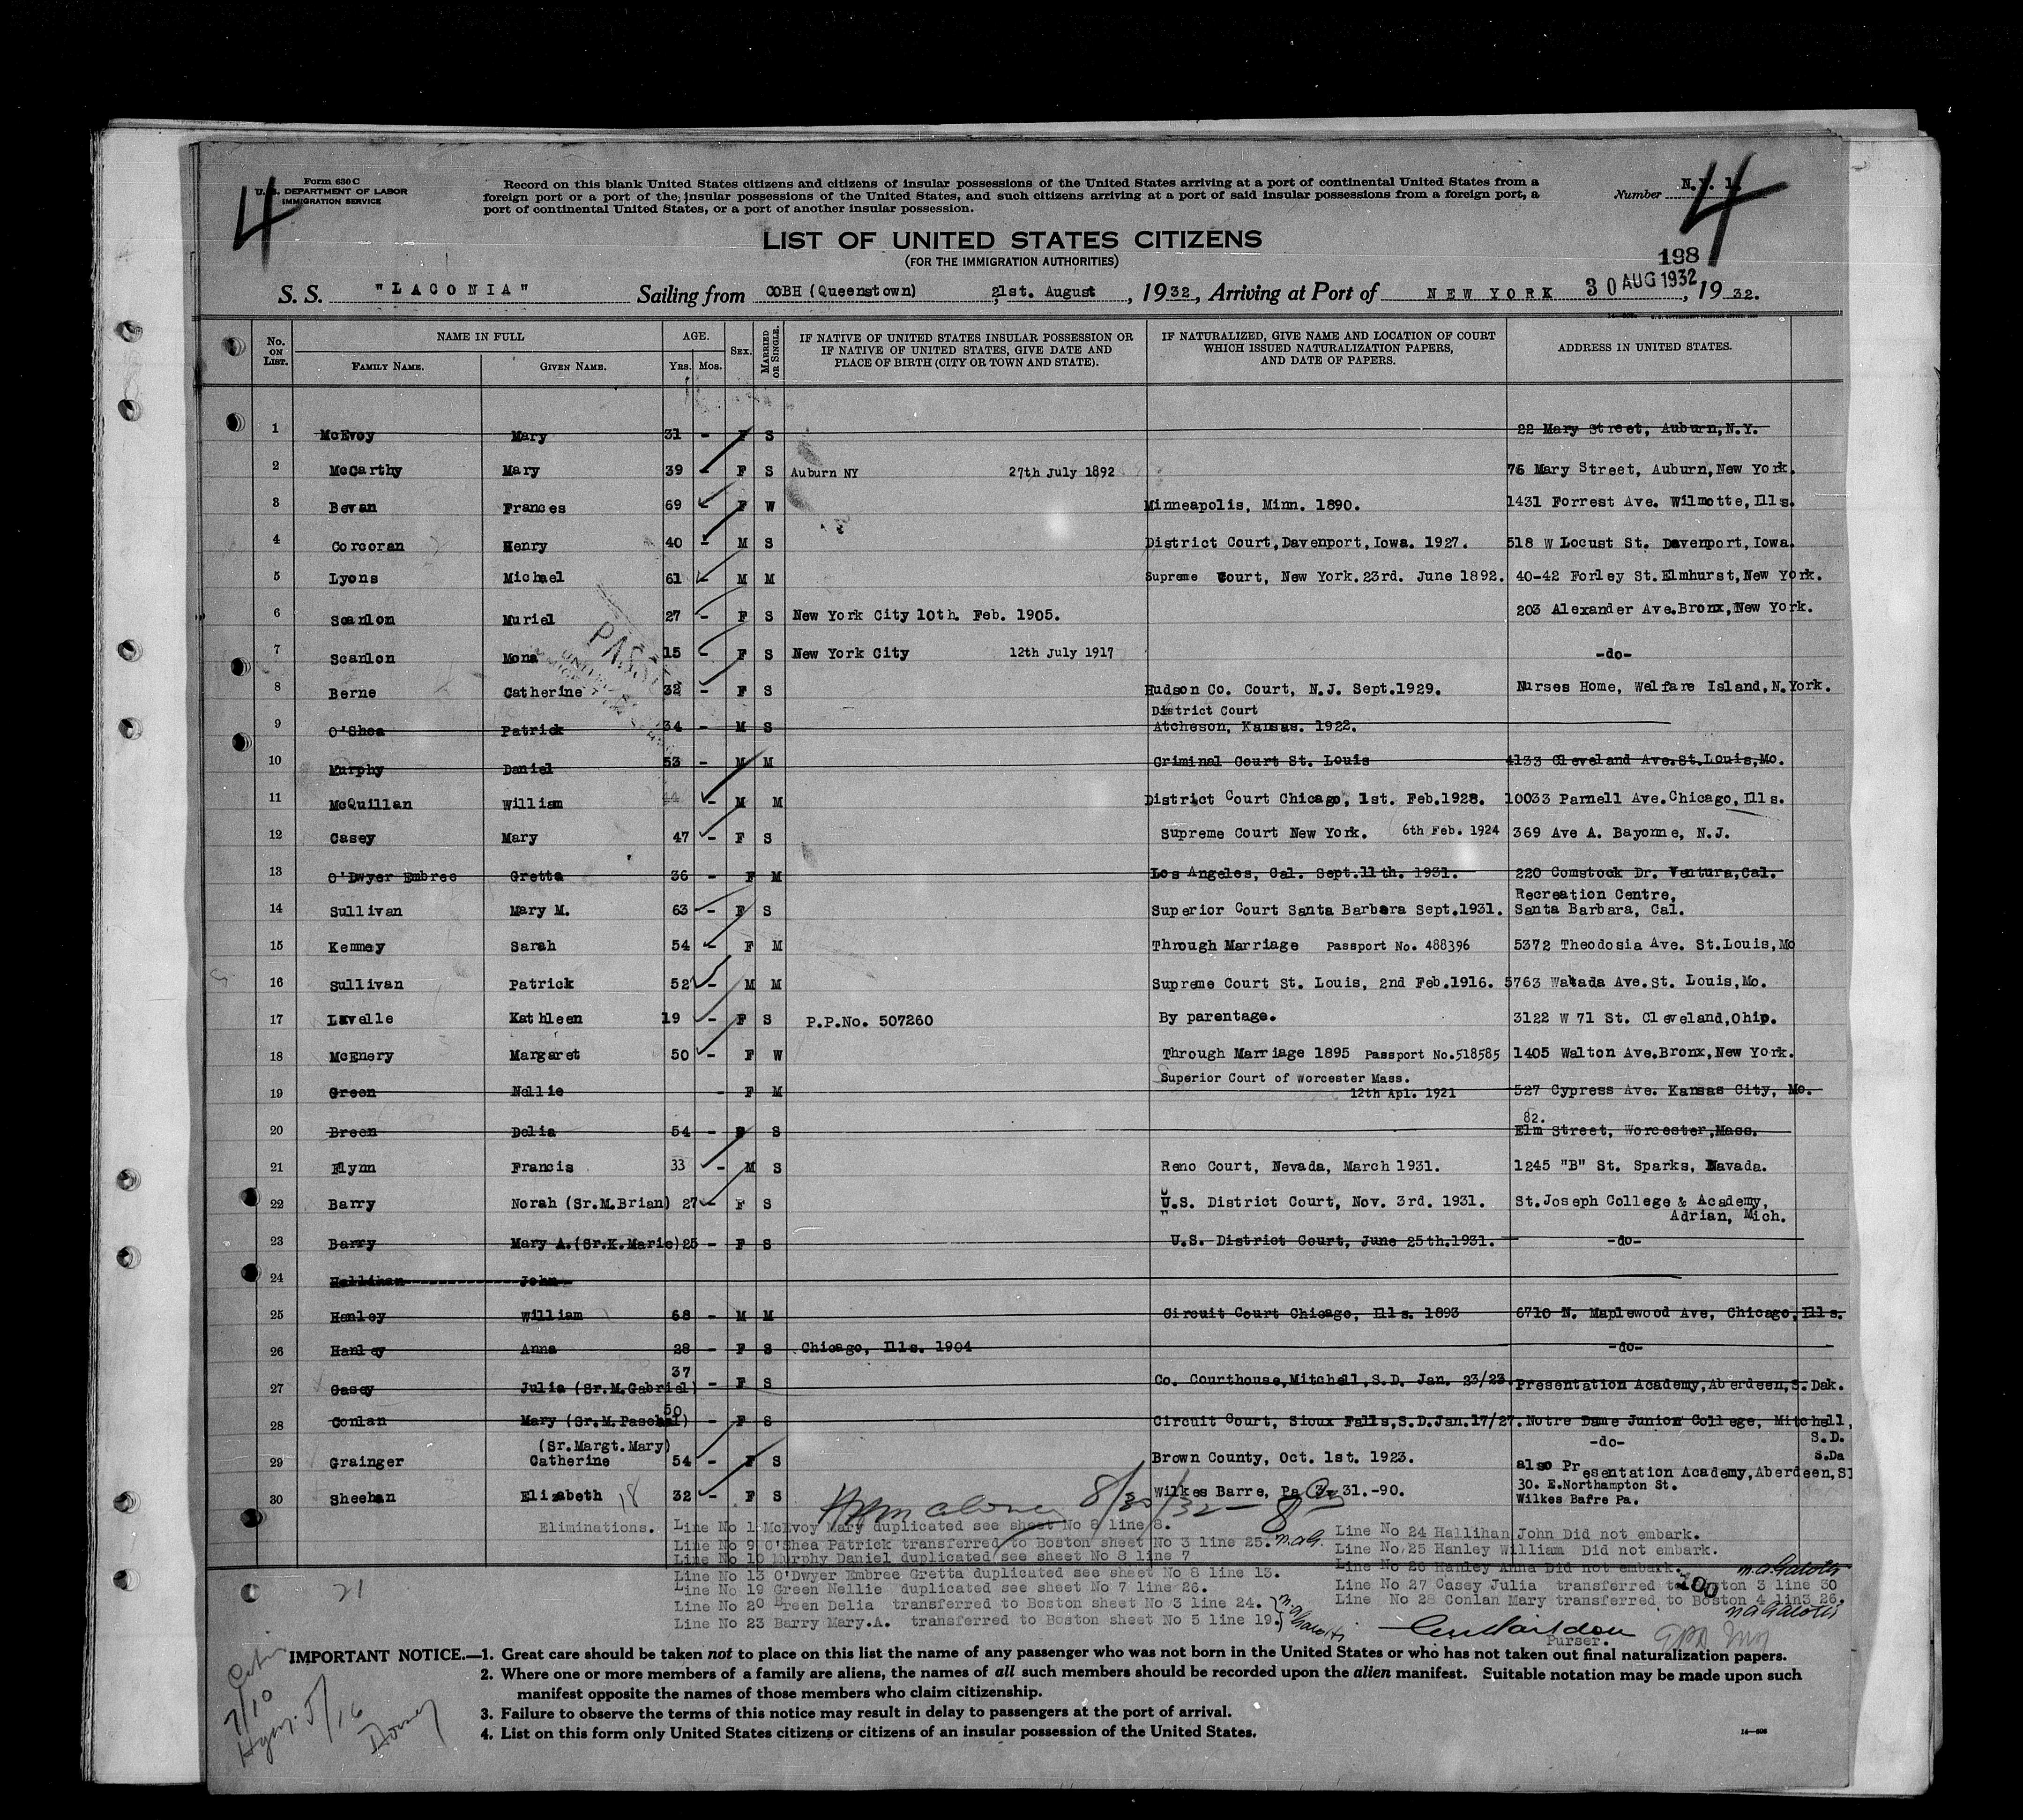 4
Form 630 C
U. S. DEPARTMENT OF LABOR
IMMIGRATION SERVICE
Record on this blank United States citizens and citizens of insular possessions of the United States arriving at a port of continental United States from a
foreign port or a port of the insular possessions of the United States, and such citizens arriving at a port of said insular possessions from a foreign port, a
port of continental United States, or a port of another insular possession.
Number N.Y. 1.
4
LIST OF UNITED STATES CITIZENS
(FOR THE IMMIGRATION AUTHORITIES)
198
S. S. "LACONIA" Sailing from COBH (Queenstown) 21st. August, 1932, Arriving at Port of NEW YORK 30 AUG 1932, 1932.
No. ON LIST. NAME IN FULL AGE. SEX. MARRIED OR SINGLE. IF NATIVE OF UNITED STATES INSULAR POSSESSION OR IF NATIVE OF UNITED STATES, GIVE DATE AND PLACE OF BIRTH (CITY OR TOWN AND STATE). IF NATURALIZED, GIVE NAME AND LOCATION OF COURT WHICH ISSUED NATURALIZATION PAPERS, AND DATE OF PAPERS. ADDRESS IN UNITED STATES.
FAMILY NAME. GIVEN NAME. YRS. MOS.
1 McEvoy Mary 31 - F S 22 Mary Street, Auburn, N.Y.
2 McCarthy Mary 39 - F S Auburn NY 27th July 1892 76 Mary Street, Auburn, New York.
3 Bevan Frances 69 - F W Minneapolis, Minn. 1890. 1431 Forrest Ave. Wilmotte, Ill's.
4 Corcoran Henry 40 - M S District Court, Davenport, Iowa. 1927. 518 W Locust St. Davenport, Iowa.
5 Lyons Michael 61 - M M Supreme Court, New York. 23rd. June 1892. 40-42 Forley St. Elmhurst, New York.
6 Scanlon Muriel 27 - F S New York City 10th. Feb. 1905. 203 Alexander Ave. Bronx, New York.
7 Scanlon Mona 15 - F S New York City 12th July 1917 -do-
8 Berne Catherine 32 - F S Hudson Co. Court, N.J. Sept. 1929. Nurses Home, Welfare Island, N.York.
District Court
9 O'Shea Patrick 34 - M S Atcheson, Kansas. 1922.
10 Murphy Daniel 53 - M M Criminal Court St. Louis 4133 Cleveland Ave. St. Louis, Mo.
11 McQuillan William 44 - M M District Court Chicago, 1st. Feb. 1928. 10033 Parnell Ave. Chicago, Ills.
12 Casey Mary 47 - F S Supreme Court New York. 6th Feb. 1924 369 Ave A. Bayonne, N.J.
13 O'Dwyer Embree Gretta 36 - F M Los Angeles, Cal. Sept. 11th. 1931. 220 Comstock Dr. Ventura, Cal.
Recreation Centre,
14 Sullivan Mary M. 63 - F S Superior Court Santa Barbara Sept. 1931. Santa Barbara, Cal.
15 Kenney Sarah 54 - F M Through Marriage Passport No. 488396 5372 Theodosia Ave. St. Louis, Mo
16 Sullivan Patrick 52 - M M Supreme Court St. Louis, 2nd Feb. 1916. 5763 Watada Ave. St. Louis, Mo.
17 Lavelle Kathleen 19 - F S P.P.No. 507260 By parentage. 3122 W 71 St. Cleveland, Ohio.
18 McEnery Margaret 50 - F W Through Marriage 1895 Passport No. 518585 1405 Walton Ave. Bronx, New York.
Superior Court of Worcester Mass.
19 Green Nellie - F M 12th Apl. 1921 527 Cypress Ave. Kansas City, Mo.
82.
20 Breen Delia 54 - S Elm Street, Worcester, Mass.
21 Flynn Francis 33 - M S Reno Court, Nevada, March 1931. 1245 "B" St. Sparks, Navada.
22 Barry Norah (Sr.M.Brian) 27 - F S U.S. District Court, Nov. 3rd. 1931. St. Joseph College & Academy,
Adrian, Mich.
23 Barry Mary A. (Sr.K.Marie) 25 - F S U.S. District Court, June 25th. 1931. -do-
24 Hallihan John
25 Hanley William 68 - M M Circuit Court Chicago, Ills. 1893 6710 N. Maplewood Ave, Chicago, Ills.
26 Hanley Anna 28 - F S Chicago, Ills. 1904 -do-
27 Casey Julia (Sr.M.Gabriel) 37 - F S Co. Courthouse, Mitchell, S.D. Jan. 23/23. Presentation Academy, Aberdeen, S. Dak.
28 Conlan Mary (Sr.M.Paschal) 50 - F S Circuit Court, Sioux Falls, S.D. Jan. 17/27. Notre Dame Junior College, Mitchell, S.D.
(Sr. Margt. Mary) -do- S.Da
29 Grainger Catherine 54 - F S Brown County, Oct. 1st. 1923. also Presentation Academy, Aberdeen, S
30 Sheehan Elizabeth 18 32 - F S Wilkes Barre, Pa 31.-90. 30. E. Northampton St.
Wilkes Bafre Pa.
8/30/32
Eliminations. Line No 1 McEvoy Mary duplicated see sheet No 8 line 8.
Line No 9 O'Shea Patrick transferred to Boston sheet No 3 line 25.
Line No 10 Murphy Daniel duplicated see sheet No 8 line 7
Line No 13 O'Dwyer Embree Gretta duplicated see sheet No 8 line 13.
Line No 19 Green Nellie duplicated see sheet No 7 line 26.
Line No 20 Breen Delia transferred to Boston sheet No 3 line 24.
Line No 23 Barry Mary.A. transferred to Boston sheet No 5 line 19.
Line No 24 Hallihan John Did not embark.
Line No 25 Hanley William Did not embark.
Line No 26 Hanley Anna Did not embark.
Line No 27 Casey Julia transferred to Boston 3 line 30
Line No 28 Conlan Mary transferred to Boston 4 lin3 26.
100
21
Purser.
IMPORTANT NOTICE.—1. Great care should be taken not to place on this list the name of any passenger who was not born in the United States or who has not taken out final naturalization papers.
2. Where one or more members of a family are aliens, the names of all such members should be recorded upon the alien manifest. Suitable notation may be made upon such
manifest opposite the names of those members who claim citizenship.
3. Failure to observe the terms of this notice may result in delay to passengers at the port of arrival.
4. List on this form only United States citizens or citizens of an insular possession of the United States.